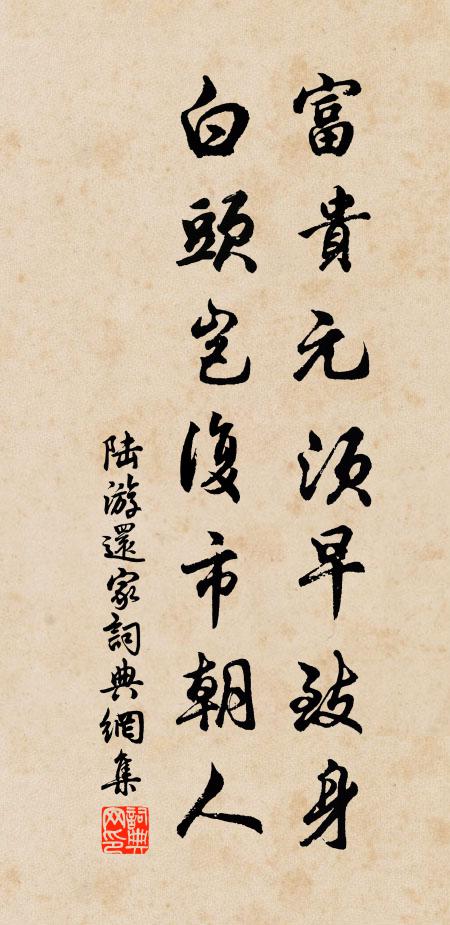 富貴元須早致身
白頭岂復市朝人
陆游還家詞典網集
詞典网印